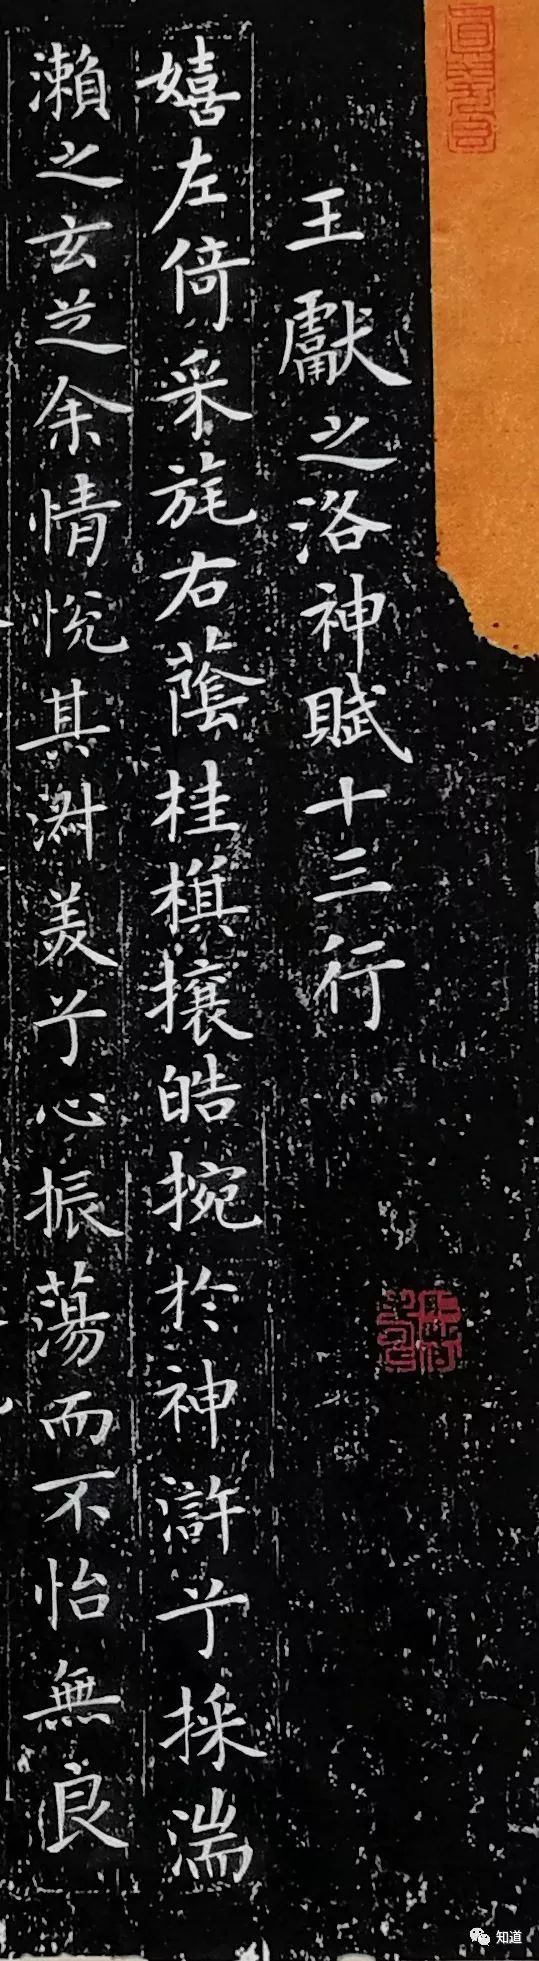 王獻之洛神賦十三行
嬉左倚采旄右蔭桂棋攘皓捥於神滸兮採湍
瀨之玄芝余情悅其淑美兮心振蕩而不怡無良
知道